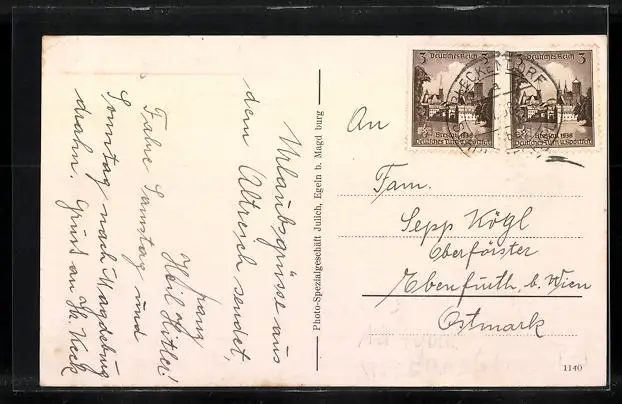 Urlaubsgrüsse aus
dem Altreich sendet
Franz
Heil Hitler!
Fahre Samstag und
Sonntag nach Magdeburg
Gruss an
Photo-Spezialgeschäft Julich, Egeln b. Magd burg
3 Deutsches Reich 3
Breslau 1938
Deutsches Turn u. Sportfest
3 Deutsches Reich 3
Breslau 1938
Deutsches Turn u. Sportfest
An
Fam.
Sepp Kögl
Oberförster
Ebenfurth, b. Wien
Ostmark
1140